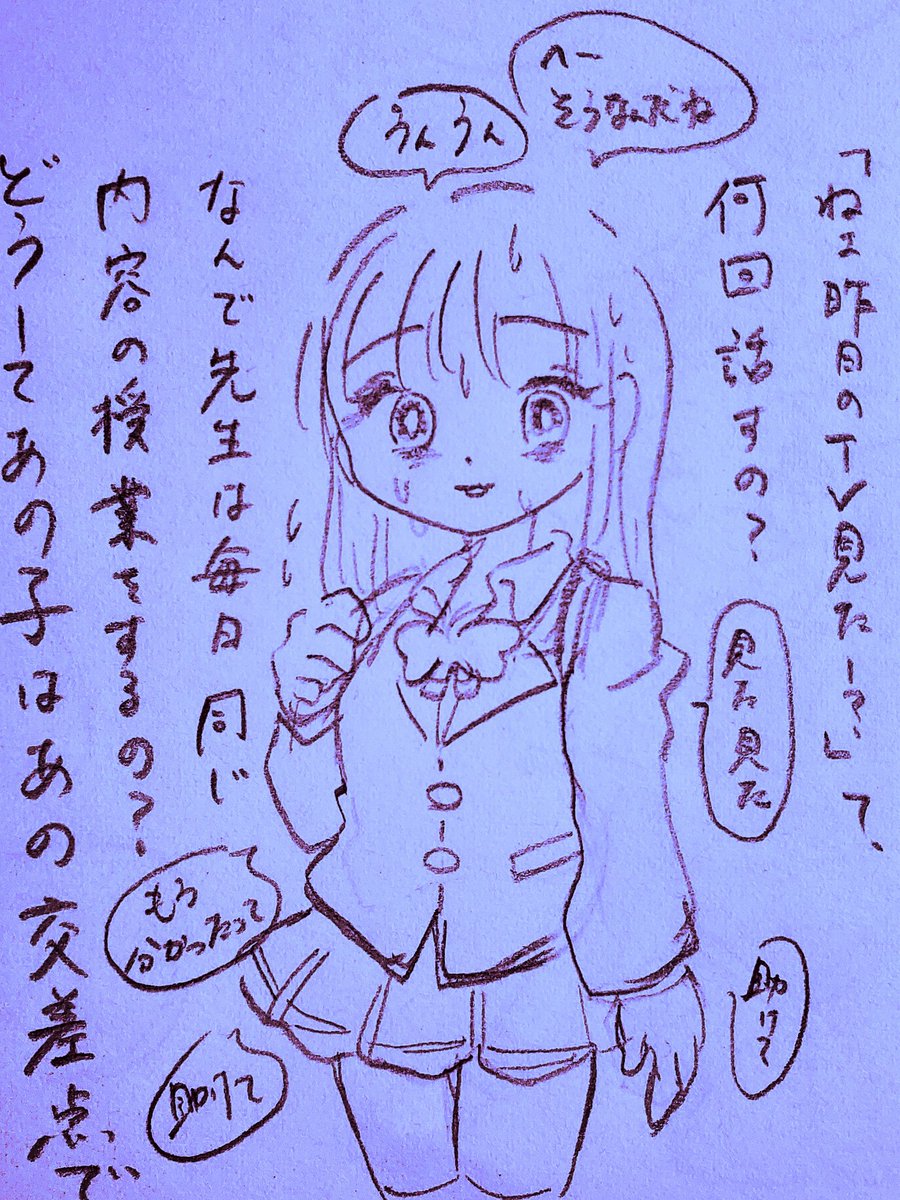 「ねェ昨日のTV見たー?」って、
何回話すの?
へー
そうなんだね
うんうん
見た見た
助けて
なんで先生は毎日同じ
内容の授業をするの?
どうしてあの子はあの交差点で
もう
分かったって
助けて